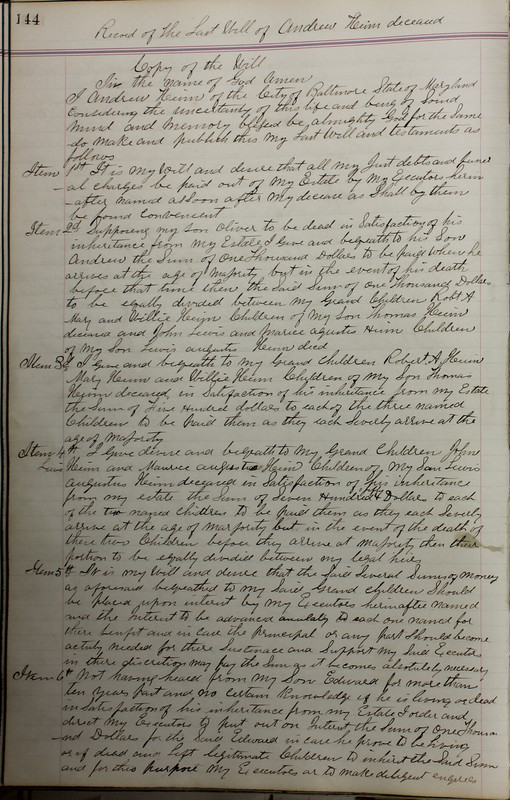 144
Record of the Last Will of Andrew Heim deceased
Copy of the Will
In the name of God Amen
I Andrew Heim of the City of Baltimore State of Maryland
Considering the uncertanty of this life and being of Sound
mind and memory blessed be almighty God for the Same
do make and publish this my Last Will and testaments as
follows
Item 1st It is my Will and desire that all my Just debts and funer
al charges be paid out of my Estate by my Executors herin
-after named as Soon after my decease as Shall by them
be found Convenient
Item 2d Supposing my Son Oliver to be dead in Satisfaction of his
inheritance from my Estate I Give and bequeath to his Son
Andrew the Sum of One Thousand Dollars to be paid when he
arrives at the age of Majority but in the event of his death
before that time then the Said Sum of one Thousand Dollars
to be equally divided between my Grand Children Robt A
Mary and Willie Heim Children of my Son Thomas Heim
deceased and John Lewis and Maurice agustus Heim Children
of my Son Lewis augustus Heim died
Item 3d I Give and bequeath to my Grand Children Robert A Heim
Mary Heim and Willie Heim Children of my Son Thomas
Heim deceased, in Satisfaction of his inheritance from my Estate
the Sum of Five Hundred dollars to each of the three named
Children to be paid them as they each Severly arrive at the
age of Majority
Item 4th I Give devise and bequeath to my Grand Children John
Lewis Heim and Maurice augustus Heim Children of my Son Lewis
augustus Heim deceased in Satisfaction of his inheritance
from my estate the Sum of Seven Hundred Dollars to each
of the two named Children to be paid them as they each Severly
arrive at the age of Marjority but in the event of the death of
these two Children before they arrive at Majority then their
portion to be equally divided between my legal heirs
Item 5th It is my Will and desire that the Said Several Sums of Money
as aforesaid bequeathed to my Said Grand Children Should
be placed upon interest by my Executors herinafter named
and the Interest to be advanced annually to each one named for
there benefit and in Case the principal or any part Should become
actuly needed for there Sustinace and Support my Said Executors
in there discretion may pay the Sum as it becomes absolutely necessary
Item 6th Not having heard from my Son Edward for more than
ten years past and no certain Knowledge if he is living or dead
in Satisfaction of his inheritance from my Estate I order and
direct my Executors to put out on Interest the Sum of One Thousa
-nd Dollars for the Said Edward in case he prove to be living
or if dead and left legitimate Children to inherit the Said Sum
and for this purpose my Executors are to make diligent enquiries